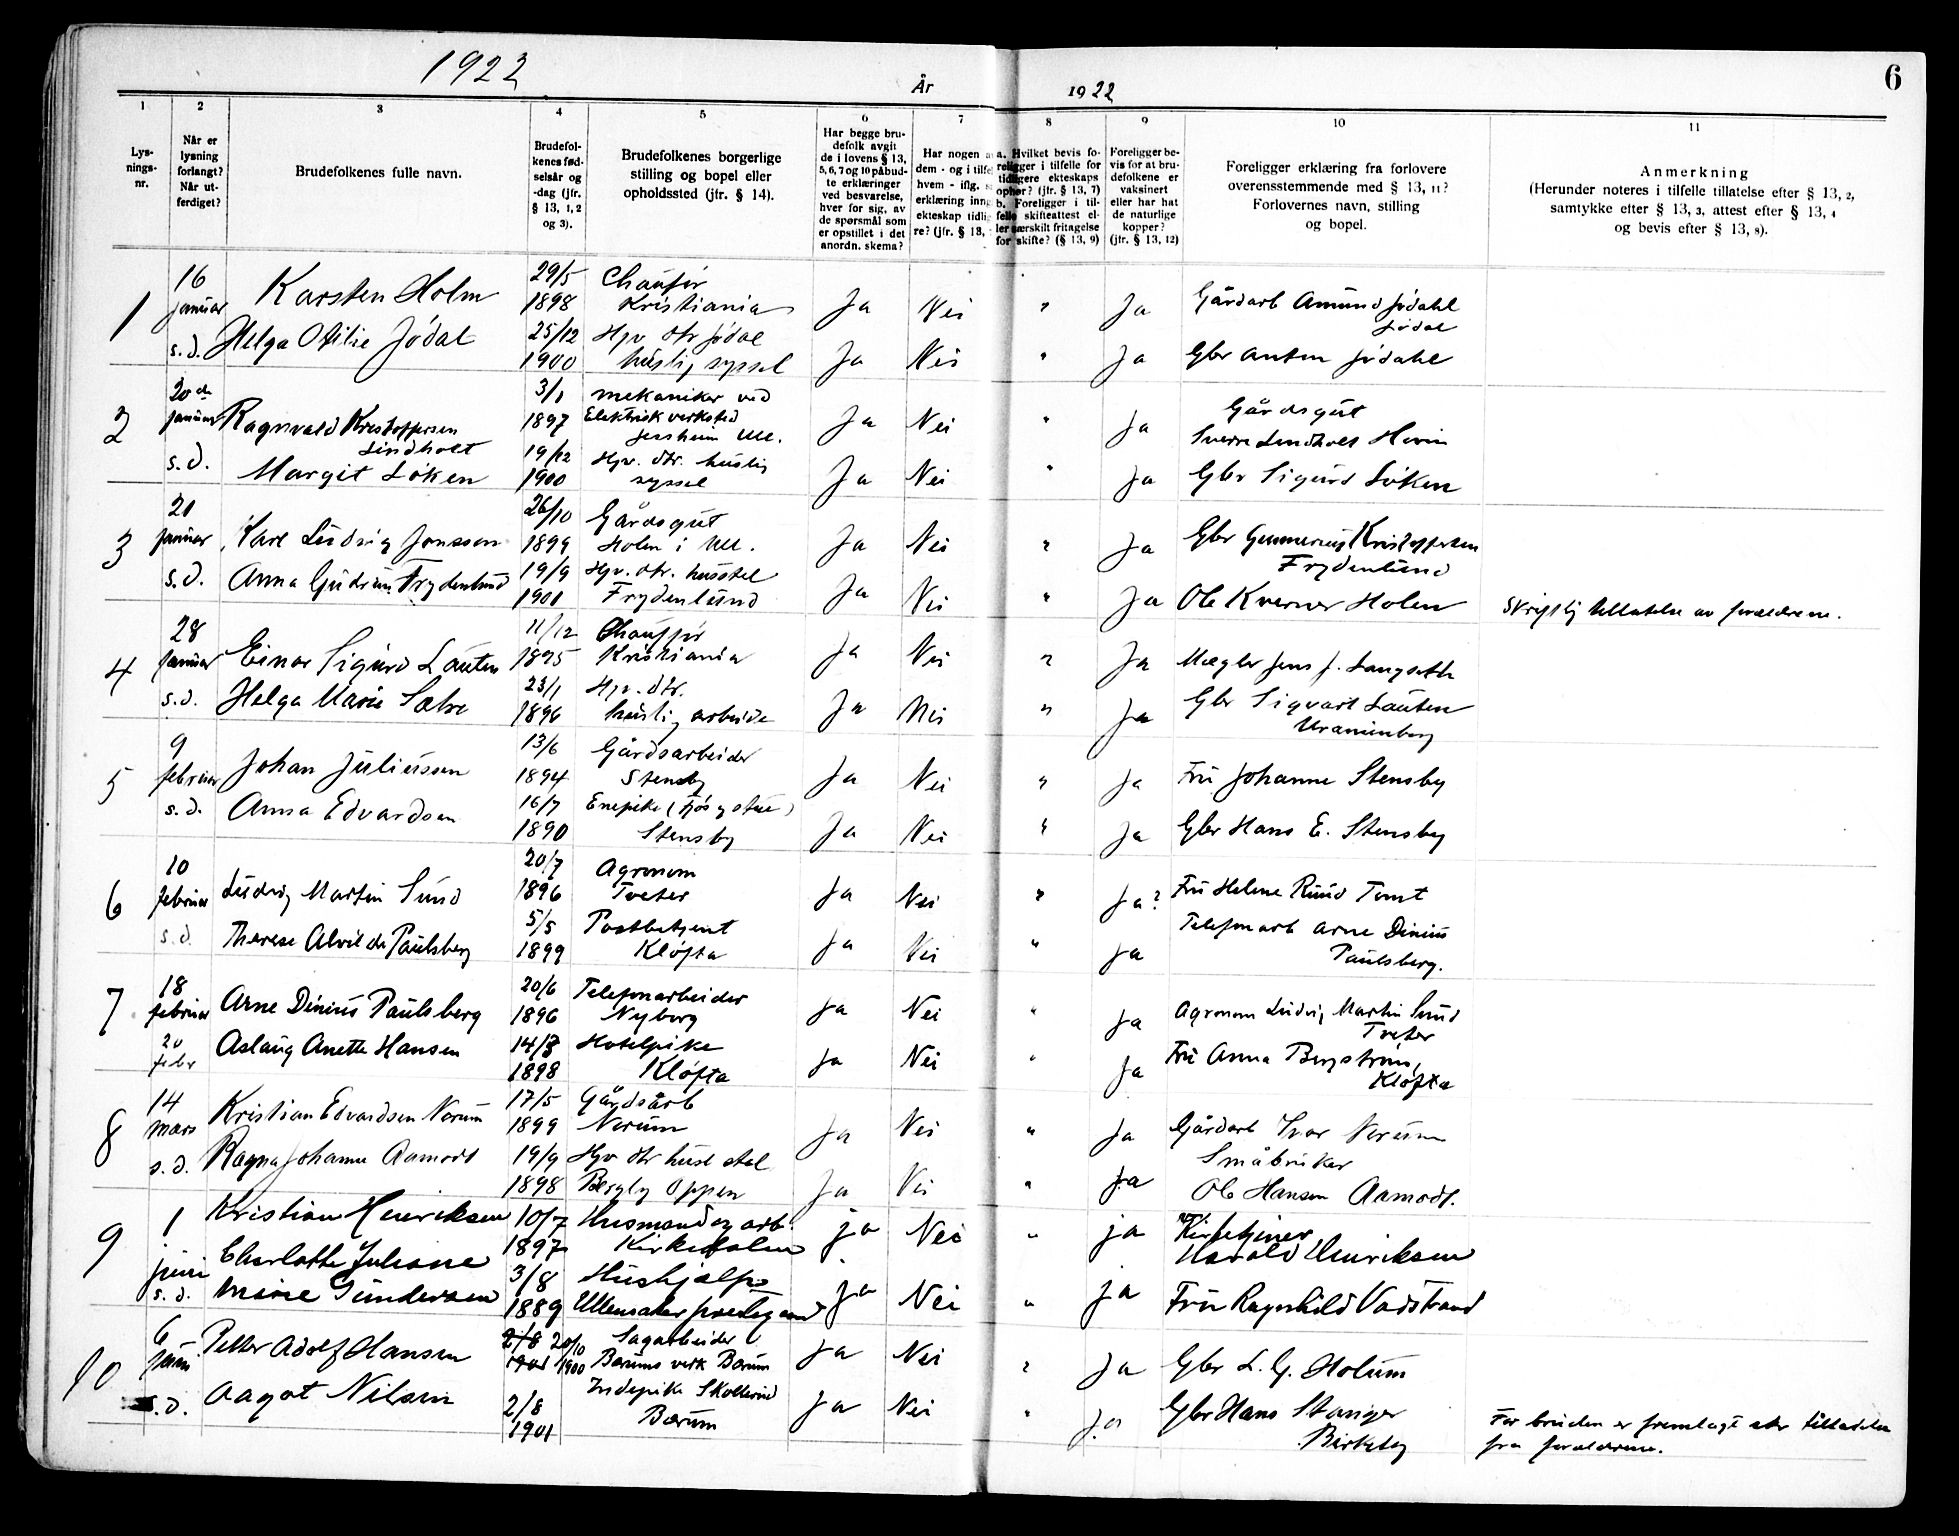 1922
År
1922
6
1
2
3
4
5
6
7
8
9
10
11
Lys-
nings-
nr.
Når er
lysning
forlangt?
Når ut-
ferdiget?
Brudefolkenes fulle navn.
Brudefol-
kenes fød-
selsår og
-dag (jfr.
§ 13, 1, 2
og 3).
Brudefolkenes borgerlige
stilling og bopel eller
opholdssted (jfr. § 14).
Har begge bru-
defolk avgit
de i lovens § 13,
5, 6, 7 og 10 påbud-
te erklæringer
ved besvarelse,
hver for sig, av
de spørsmål som
er opstillet i det
anordn. skema?
Har nogen a
dem - og i tilfe
hvem - iflg. s
erklæring inng
ekteskap tidlig
re? (jfr. § 13,
a. Hvilket bevis fo-
religger i tilfelle for
tidligere ekteskaps
ophør? (jfr. § 13, 7)
b. Foreligger i til-
felle skifteattest el-
ler særskilt fritagelse
for skifte? (§ 13, 9)
Foreligger be-
vis for at bru-
defolkene er
vaksinert
eller har hat
de naturlige
kopper?
(jfr. § 13, 12)
Foreligger erklæring fra forlovere
overensstemmende med § 13, 11?
Forlovernes navn, stilling
og bopel.
Anmerkning
(Herunder noteres i tilfelle tillatelse efter § 13, 2,
samtykke efter § 13, 3, attest efter § 13, 4
og bevis efter § 13, 8).
1
16
januar
Karsten Holm
29/5
1898
Chaufør
Kristiania
Ja
Nei
"
Ja
Gårdarb Amund Jødahl
Jødal
s.d.
Helga Otilie Jødal
25/12
1900
Hjv dtr Jødal
huslig syssel
Ja
Nei
"
Ja
Gbr Anton Jødahl
2
20de
januar
Ragnvald Kristoffersen
Lindholt
3/1
1897
mekaniker ved
Elektrisk verksted
Jessheim Ull.
Ja
Nei
"
Ja
Gårdsgut
Sverre Lindholt Hovin
s.d.
Margit Løken
19/12
1900
Hjv. dtr. huslig
syssel
Ja
Nei
"
Ja
Gbr Sigurd Løken
3
21
januar
Karl Ludvig Jonsson
26/10
1899
Gårdsgut
Holen i Ull.
Ja
Nei
"
Ja
Gbr Gunnerius Kristoffersen
Frydenlund
s.d.
Anna Gudrun Frydenlund
19/9
1901
Hjv. dtr. husstel
Frydenlund
Ja
Nei
"
Ja
Ole Kverner Holen
Skriftlig tillatelse av forældrene.
4
28
januar
Einar Sigurd Lauten
11/12
1895
Chauffør
Kristiania
Ja
Nei
"
Ja
Mægler Jens J. Langseth
s.d.
Helga Marie Sætre
23/1
1896
Hjv. dtr.
huslig arbeide
Ja
Nei
"
Ja
Gbr Sigvart Lauten
Uranienborg
5
9
februar
Johan Juliussen
13/6
1894
Gårdsarbeider
Stensby
Ja
Nei
"
Ja
Fru Johanne Stensby
s.d.
Anna Edvardsen
16/7
1890
Enepike (fjøs og stue)
Stensby
Ja
Nei
"
Ja
Gbr Hans E. Stensby
6
10
februar
Ludvig Martin Sund
20/7
1896
Agronom
Tveter
Ja
Nei
"
Ja?
Fru Helene Ruud Tomt
s.d.
Therese Alvilde Paulsberg
5/5
1899
Postbetjent
Kløfta
Ja
Nei
"
Ja
Telefonarb Arne Dinius
Paulsberg.
7
18
februar
Arne Dinius Paulsberg
20/6
1896
Telefonarbeider
Nyborg
Ja
Nei
"
Ja
Agronom Ludvig Martin Sund
Tveter
20
febr
Aslaug Anette Hansen
14/8
1898
Hotelpike
Kløfta
Ja
Nei
"
Ja
Fru Anna Bergstrøm,
Kløfta
8
14
mars
Kristian Edvardsen Norum
17/5
1899
Gårdsarb
Norum
Ja
Nei
"
Ja
Gårdarb Ivar Norum
s.d.
Ragna Johanne Aamodt
19/9
1898
Hjv dtr husl stel
Bergly Oppen
Ja
Nei
"
Ja
Småbruker
Ole Hansen Aamodt.
9
1
juni
Kristian Henriksen
10/7
1897
Husmand og arb.
Kirkeholen
ja
Nei
"
ja
Kirketjener
Harald Henriksen
s.d.
Charlotte Juliane
Marie Gundersen
3/8
1889
Hushjælp
Ullensaker prestegaard
ja
Nei
"
ja
Fru Ragnhild Vadstrand
10
6
juni
Petter Adolf Hansen
2/8 20/10
1901 1900
Sagarbeider
Bærums verk Bærum
Ja
Nei
"
Ja
Gbr L. G. Holum
s.d.
Aagot Nilsen
2/8
1901
Indepike
Bærum
Ja
Nei
"
Ja
Gbr Hans Stanger
Birkeby
For bruden er fremlagt skr tilladelse
fra forældrene.